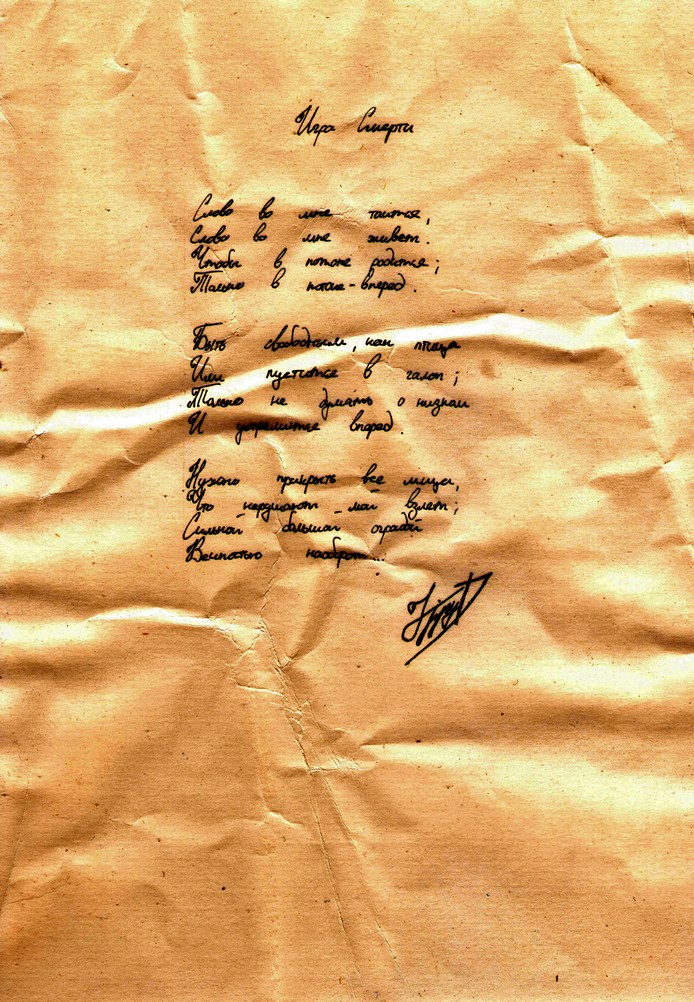 Игра Смерти
Слово во мне таится,
Слово во мне живет.
Чтобы в потоке родится;
Только в потоке-вперед.
Быть свободным, как птица
Или пустится в галоп;
Только не думать о низком
И устремиться вперед.
Нужно прикрыть все лица,
Что мой взлет;
Сильной большой оградой
наоборот...